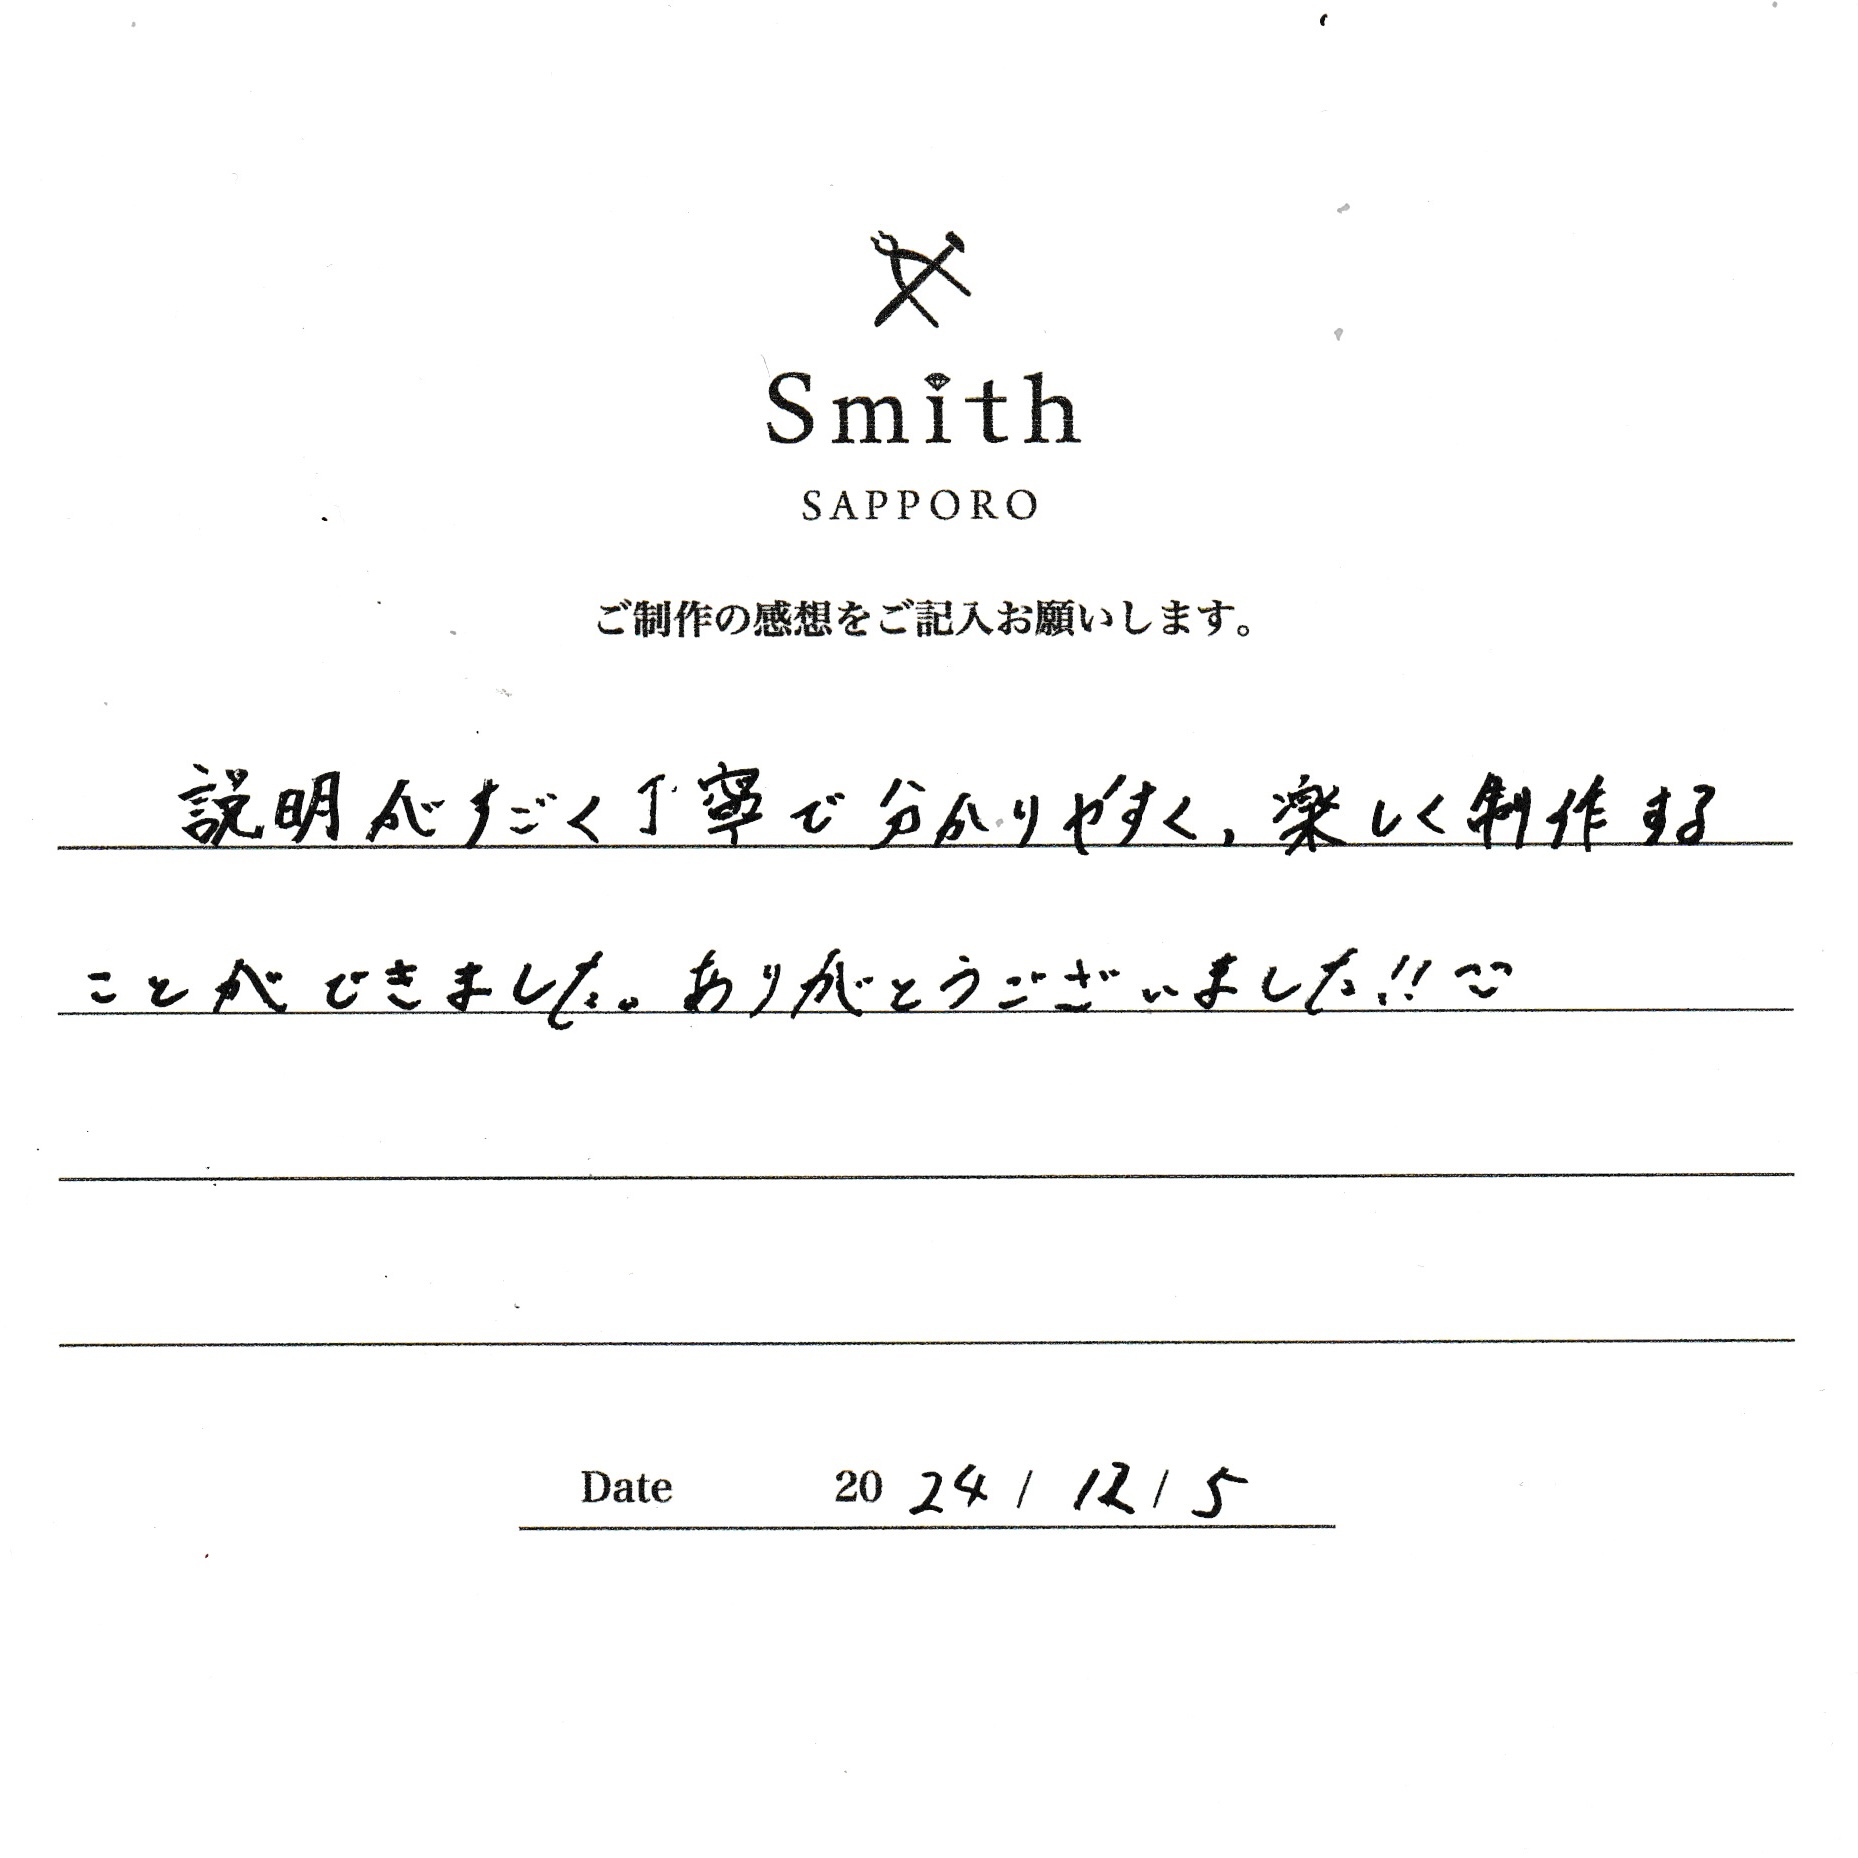 Smith
SAPPORO
ご制作の感想をご記入お願いします。
説明がすごく丁寧で分かりやすく、楽しく制作する
ことができました。ありがとうございました!!
Date 20 24 / 12 / 5